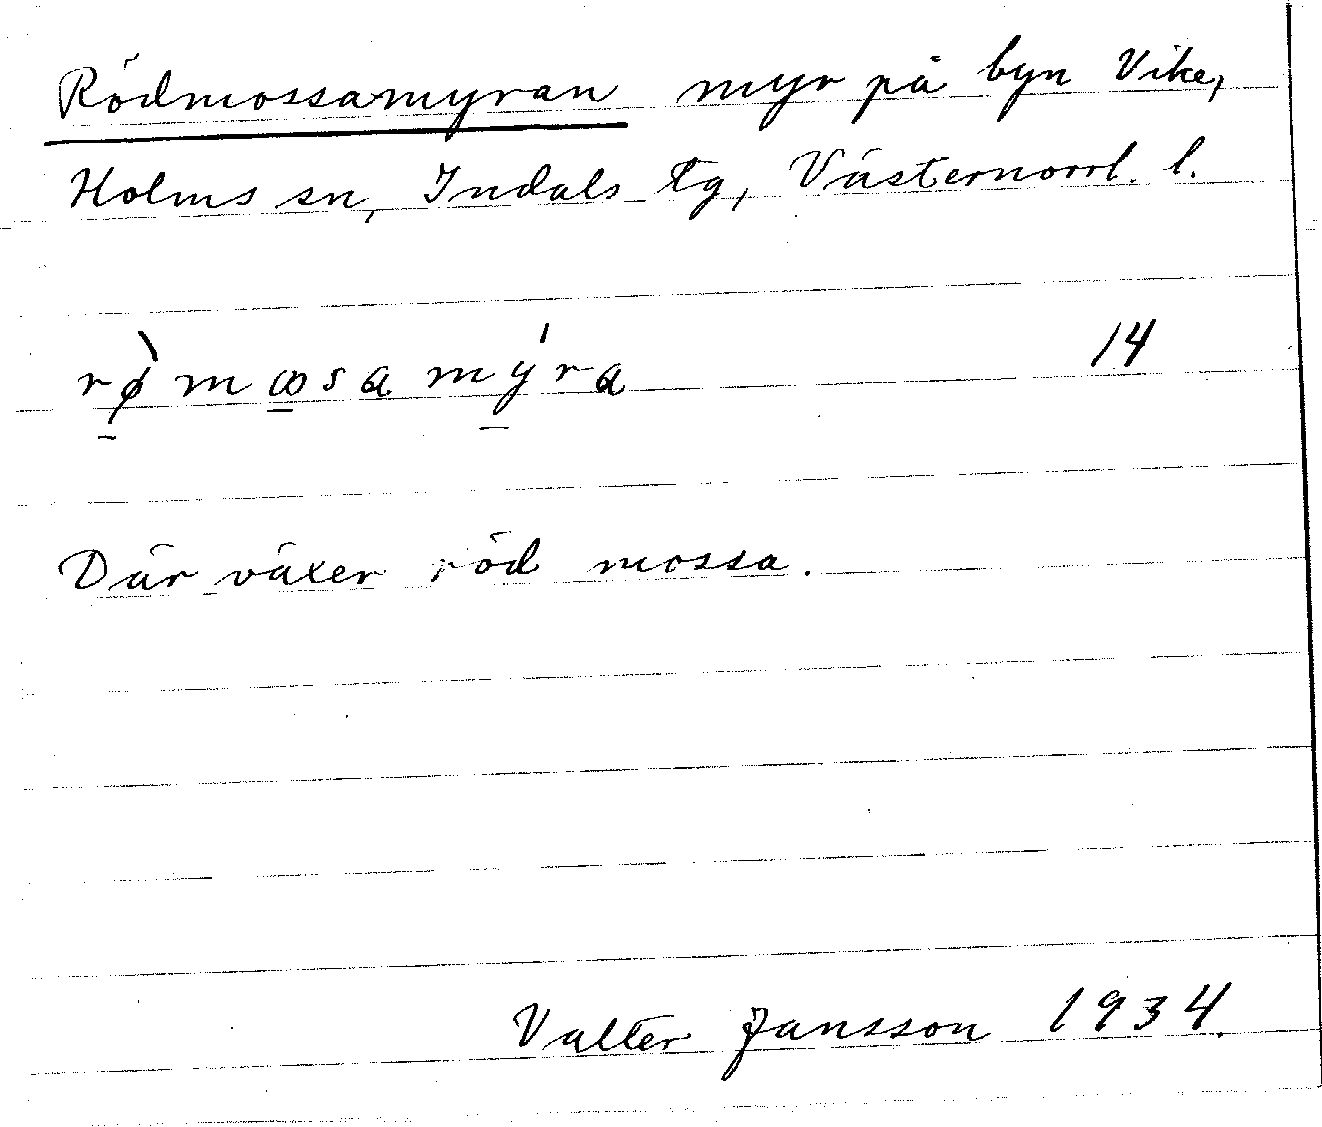 Rödmossamyran myr på byn Vike,
Holms sn, Indals tg, Västernorrl. l.
rø̀mꝏsamýra 14
Där växer röd mossa.
Valter Jansson 1934.